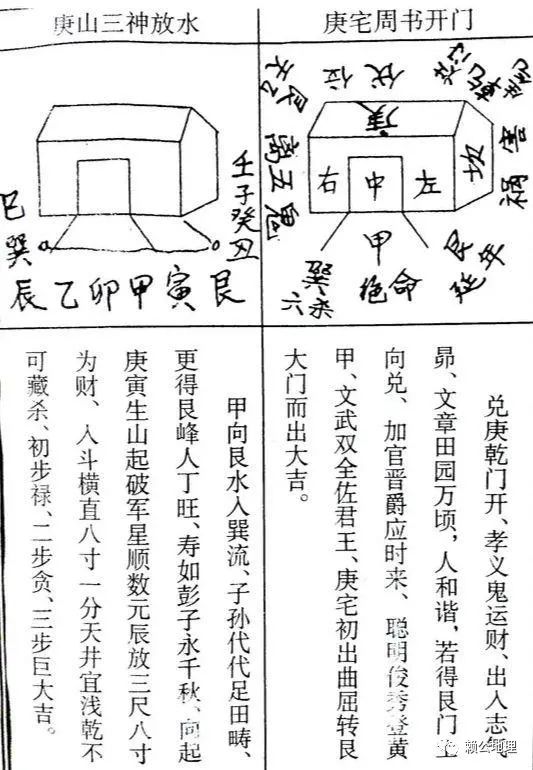 庚宅周书开门
伏位
庚
离五鬼
坎
祸害
右 中 左
甲
巽
六杀
绝命
艮
延年
兑庚乾门开、孝义鬼运财、出入志气
昴、文章田园万顷，人和谐，若得艮门上
向兑、加官晋爵应时来、聪明俊秀登黄
甲、文武双全佐君王、庚宅初出曲屈转艮
大门而出大吉。
庚山三神放水
壬子癸丑
巳巽
辰乙卯甲寅艮
甲向艮水入巽流、子孙代代足田畴、
更得艮峰人丁旺、寿如彭子永千秋、向起
庚寅生山起破军星顺数元辰放三尺八寸
为财、入斗横直八寸一分天井宜浅乾不
可藏杀、初步禄、二步贪、三步巨大吉。
赖公地理